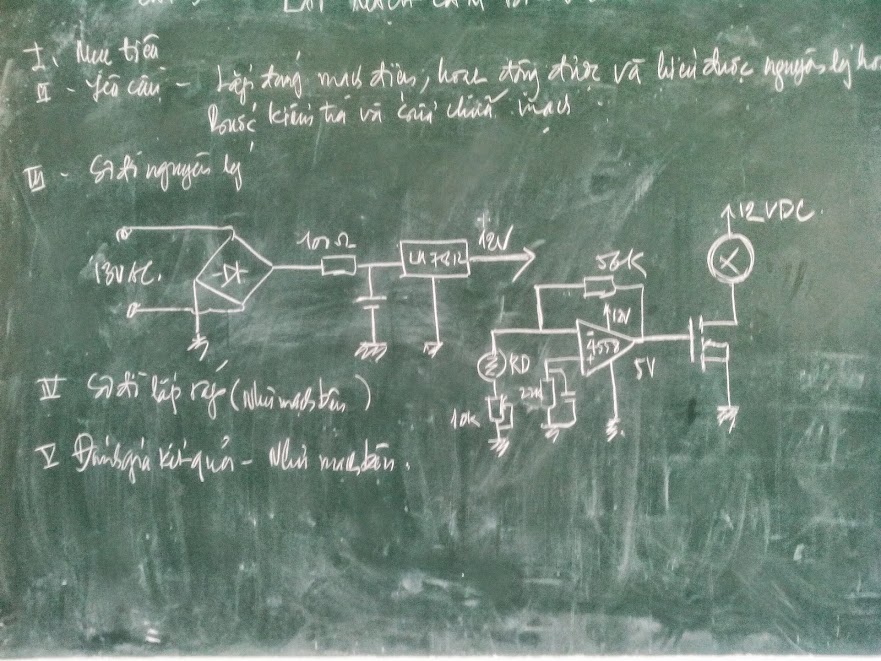 LẮP MẠCH CẢM BI
I. Mục tiêu
II - Yêu cầu - Lắp đúng mạch điện, hoạt động được và hiểu được nguyên lý ho
bước kiểm tra và sửa chữa mạch
III - Sơ đồ nguyên lý
12VDC
100Ω
12V
LM7812
13VAC
56K
12V
4558
5V
RD
10K
IV Sơ đồ lắp ráp (Như mạch bên)
V Đánh giá kết quả - Như mạch bên.